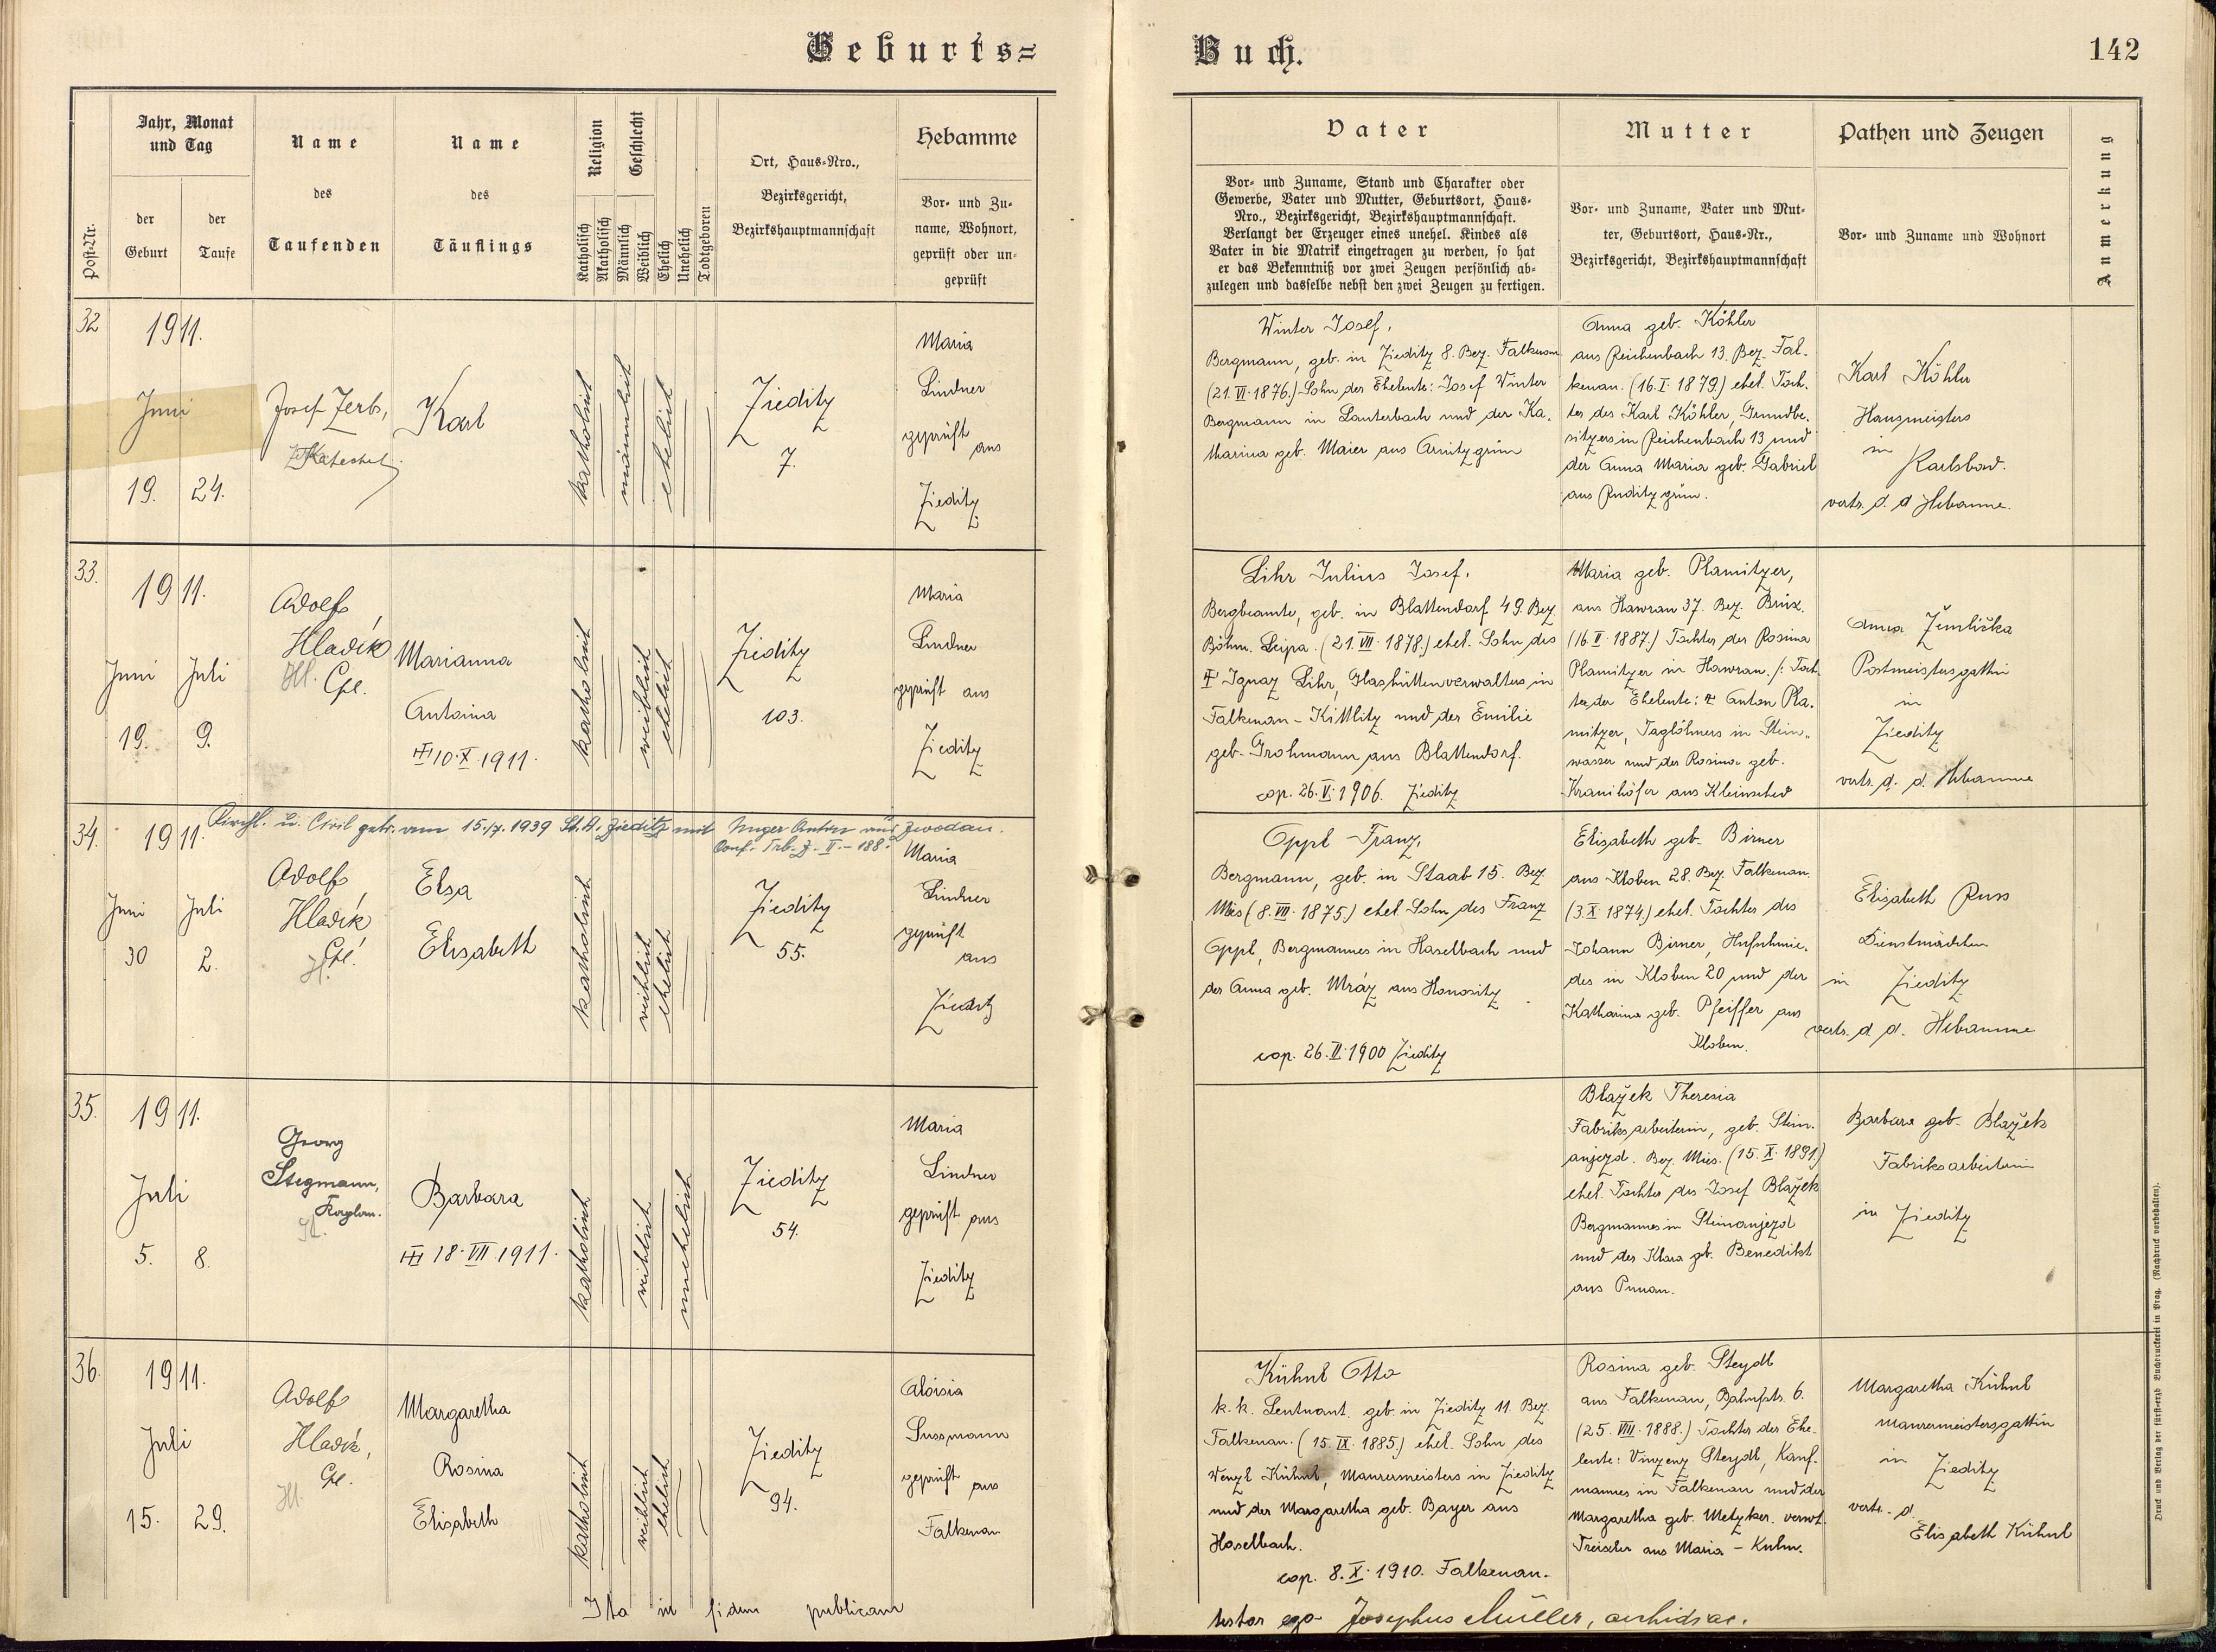 Geburts=
Buch.
142
Post-Nr.
Jahr, Monat
und Tag
der
Geburt
der
Taufe
Name
des
Taufenden
Name
des
Täuflings
Religion
Katholisch
Akatholisch
Geschlecht
Männlich
Weiblich
Ehelich
Unehelich
Todtgeboren
Ort, Haus-Nro.,
Bezirksgericht,
Bezirkshauptmannschaft
Hebamme
Vor- und Zu-
name, Wohnort,
geprüft oder un-
geprüft
Vater
Vor- und Zuname, Stand und Charakter oder
Gewerbe, Vater und Mutter, Geburtsort, Haus-
Nro., Bezirksgericht, Bezirkshauptmannschaft.
Verlangt der Erzeuger eines unehel. Kindes als
Vater in die Matrik eingetragen zu werden, so hat
er das Bekenntniß vor zwei Zeugen persönlich ab-
zulegen und dasselbe nebst den zwei Zeugen zu fertigen.
Mutter
Vor- und Zuname, Vater und Mut-
ter, Geburtsort, Haus-Nr.,
Bezirksgericht, Bezirkshauptmannschaft
Pathen und Zeugen
Vor- und Zuname und Wohnort
Anmerkung
32
1911.
Juni
19. 24.
Josef Zerb,
Katechet
Karl
katholisch
männlich
ehelich
Zieditz
7.
Maria
Lindner
geprüft
aus
Zieditz
Winter Josef,
Bergmann, geb. in Zieditz 8. Bez. Falkenau
(21. VI. 1876.) Sohn der Eheleute: Josef Winter
Bergmann in Lauterbach und der Ka-
tharina geb. Maier aus Arnitzgrün
Anna geb. Köhler
aus Reichenbach 13. Bez. Fal-
kenau. (16. I. 1879.) ehel. Toch-
ter des Karl Köhler, Grundbe-
sitzers in Reichenbach 13 und
der Anna Maria geb. Gabriel
aus Ruditzgrün.
Karl Köhler
Hausmeisters
in
Karlsbad.
vertr. d. d. Hebamme.
33.
1911.
Juni Juli
19. 9.
Adolf
Hladík
Hl. Cpl.
Marianna
Antonia
10. X. 1911.
katholisch
weiblich
ehelich
Zieditz
103.
Maria
Lindner
geprüft aus
Zieditz
Lihr Julius Josef,
Bergbeamte, geb. in Blattendorf 49. Bez
Böhm. Leipa. (21. VII. 1878.) ehel. Sohn des
Ignaz Lihr, Glashüttenverwalters in
Falkenau - Kittlitz und der Emilie
geb. Grohmann aus Blattendorf.
cop. 26. V. 1906. Zieditz
Maria geb. Plamitzer,
aus Hawran 37. Bez. Brüx.
(16. II. 1887.) Tochter der Rosina
Plamitzer in Hawran. /: Toch-
ter der Eheleute: Anton Pla-
mitzer, Taglöhners in Stein-
wasser und der Rosina geb.
Anna Žemlička
Postmeistersgattin
in
Zieditz
vertr. d. d. Hebamme
34.
1911.
Kirchl. u. Civil getr. am 15./7. 1939 St. A. Zieditz mit Unger Anton aus Zwodau.
Conf. Trb. Z. II. - 188.
Juni Juli
30 2.
Adolf
Hladík
Cpl.
Hl.
Elsa
Elisabeth
katholisch
weiblich
ehelich
Zieditz
55.
Maria
Lindner
geprüft
aus
Zieditz
Oppl Franz,
Bergmann, geb. in Staab 15. Bez
Mies (8. VII. 1875.) ehel. Sohn des Franz
Oppl, Bergmannes in Haselbach und
der Anna geb. Mráz aus Honositz
cop. 26. II. 1900 Zieditz
Elisabeth geb. Birner
aus Kloben 28. Bez. Falkenau.
(3. X. 1874.) ehel. Tochter des
Johann Birner, Hufschmie-
des in Kloben 20 und der
Katharina geb. Pfeiffer aus
Kloben.
Elisabeth Russ
Dienstmädchen
in Zieditz
vertr. d. d. Hebamme
35.
1911.
Juli
5. 8.
Georg
Stegmann,
Kaplan.
Hl.
Barbara
18. VII. 1911.
katholisch
weiblich
unehelich
Zieditz
54.
Maria
Lindner
geprüft aus
Zieditz
Blažek Theresia
Fabriksarbeiterin, geb. Stein-
anjezd. Bez. Mies. (15. X. 1891.)
ehel. Tochter des Josef Blažek
Bergmannes in Steinanjezd
und der Klara geb. Benedikt
aus
Barbara geb. Blažek
Fabriksarbeiterin
in Zieditz
36.
1911.
Juli
15. 29.
Adolf
Hladík,
Cpl.
Hl.
Margaretha
Rosina
Elisabeth
katholisch
weiblich
ehelich
Zieditz
94.
Aloisia
Sussmann
geprüft aus
Falkenau
Kühnl Otto
k. k. Leutnant. geb. in Zieditz 11. Bez.
Falkenau. (15. IX. 1885.) ehel. Sohn des
Wenzl Kühnl, Maurermeisters in Zieditz
und der Margaretha geb. Bayer aus
Haselbach.
cop. 8. X. 1910. Falkenau.
Rosina geb. Steydl
aus Falkenau, Bahnhfstr. 6.
(25. VIII. 1888.) Tochter der Ehe-
leute: Vinzenz Steydl, Kauf-
mannes in Falkenau und der
Margaretha geb. Metzker. verwt.
Treischer aus Maria - Kulm.
Margaretha Kühnl
Maurermeistersgattin
in Zieditz
vertr. d.
Elisabeth Kühnl
Ita in fidem publicam
testor ego Josephus Müller, archidiac.
Druck und Verlag der fürst-erzb Buchdruckerei in Prag. (Nachdruck vorbehalten).